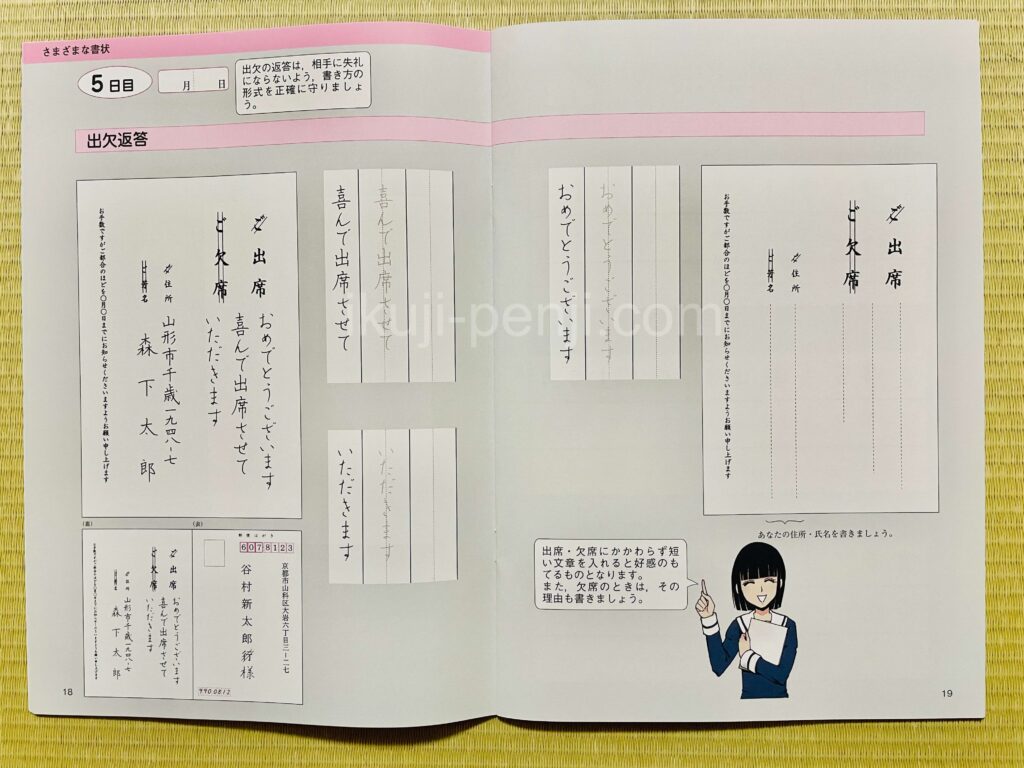 さまざまな書状
5日目
月 日
出欠の返答は，相手に失礼
にならないよう，書き方の
形式を正確に守りましょ
う。
出欠返答
ご出席
おめでとうございます
ご欠席
喜んで出席させて
いただきます
ご住所
山形市千歳一九四八ー七
ご芳名
森下太郎
お手数ですがご都合のほどを〇月〇日までにお知らせくださいますようお願い申し上げます
喜んで出席させて
喜んで出席させて
いただきます
いただきます
おめでとうございます
おめでとうございます
ご出席
ご欠席
ご住所
ご芳名
お手数ですがご都合のほどを〇月〇日までにお知らせくださいますようお願い申し上げます
あなたの住所・氏名を書きましょう。
(裏)
ご出席
おめでとうございます
ご欠席
喜んで出席させて
いただきます
ご住所
山形市千歳一九四八ー七
ご芳名
森下太郎
(表)
郵便はがき
6078123
京都市山科区大岩六丁目三ー二七
谷村新太郎行様
990-0812
出席・欠席にかかわらず短
い文章を入れると好感のも
てるものとなります。
また，欠席のときは，その
理由も書きましょう。
18
19
ikuji-penji.com